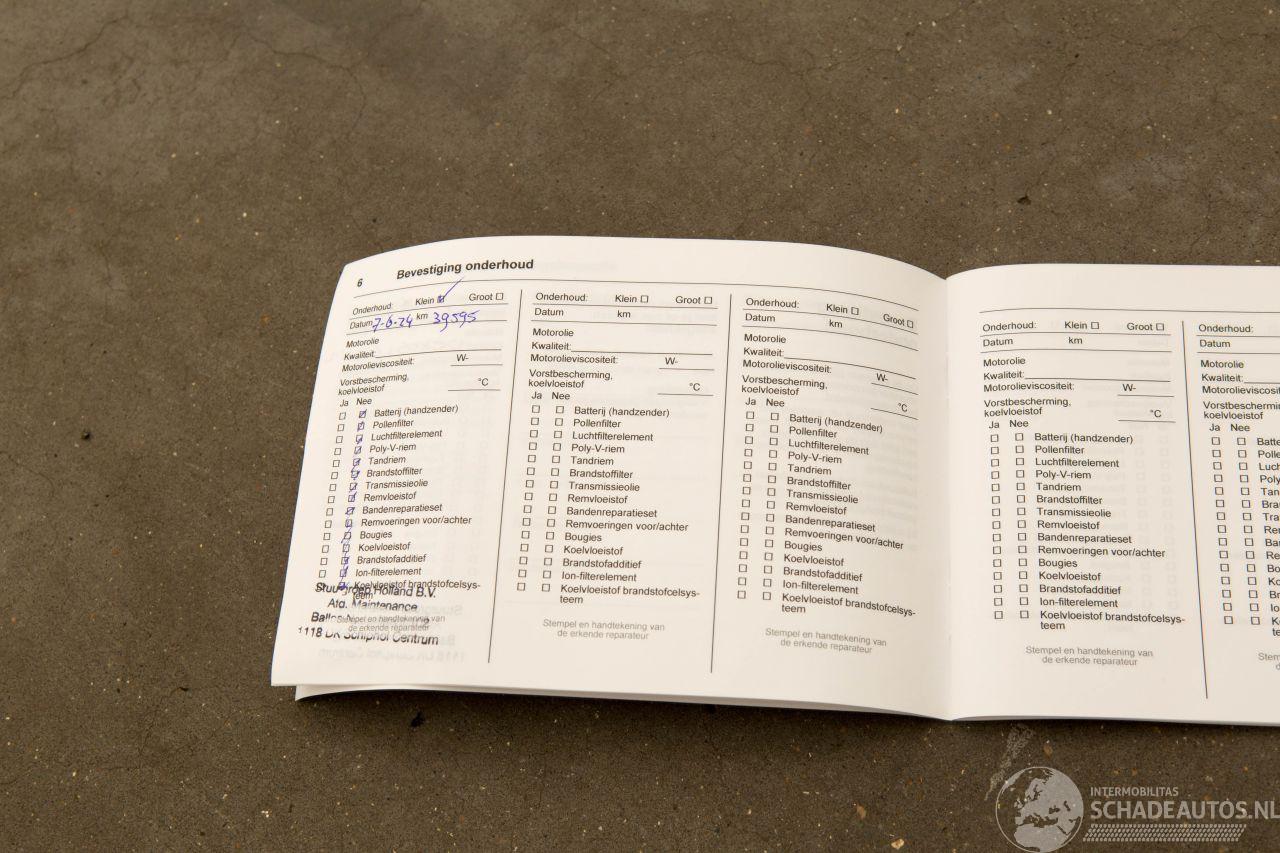 6 Bevestiging onderhoud
Onderhoud: Klein ☑ Groot ☐
Datum 7-6-24 km 39595
Motorolie
Kwaliteit:
Motorolieviscositeit: W-
Vorstbescherming,
koelvloeistof °C
Ja Nee
Batterij (handzender)
Pollenfilter
Luchtfilterelement
Poly-V-riem
Tandriem
Brandstoffilter
Transmissieolie
Remvloeistof
Bandenreparatieset
Remvoeringen voor/achter
Bougies
Koelvloeistof
Brandstofadditief
Ion-filterelement
Koelvloeistof brandstofcelsys-
teem
Holland B.V.
Maintenance
1118 DK Schiphol Centrum
Stempel en handtekening van
de erkende reparateur
Onderhoud: Klein ☐ Groot ☐
Datum km
Motorolie
Kwaliteit:
Motorolieviscositeit: W-
Vorstbescherming,
koelvloeistof °C
Ja Nee
Batterij (handzender)
Pollenfilter
Luchtfilterelement
Poly-V-riem
Tandriem
Brandstoffilter
Transmissieolie
Remvloeistof
Bandenreparatieset
Remvoeringen voor/achter
Bougies
Koelvloeistof
Brandstofadditief
Ion-filterelement
Koelvloeistof brandstofcelsys-
teem
Stempel en handtekening van
de erkende reparateur
Onderhoud: Klein ☐ Groot ☐
Datum km
Motorolie
Kwaliteit:
Motorolieviscositeit: W-
Vorstbescherming,
koelvloeistof °C
Ja Nee
Batterij (handzender)
Pollenfilter
Luchtfilterelement
Poly-V-riem
Tandriem
Brandstoffilter
Transmissieolie
Remvloeistof
Bandenreparatieset
Remvoeringen voor/achter
Bougies
Koelvloeistof
Brandstofadditief
Ion-filterelement
Koelvloeistof brandstofcelsys-
teem
Stempel en handtekening van
de erkende reparateur
Onderhoud: Klein ☐ Groot ☐
Datum km
Motorolie
Kwaliteit:
Motorolieviscositeit: W-
Vorstbescherming,
koelvloeistof °C
Ja Nee
Batterij (handzender)
Pollenfilter
Luchtfilterelement
Poly-V-riem
Tandriem
Brandstoffilter
Transmissieolie
Remvloeistof
Bandenreparatieset
Remvoeringen voor/achter
Bougies
Koelvloeistof
Brandstofadditief
Ion-filterelement
Koelvloeistof brandstofcelsys-
teem
Stempel en handtekening van
de erkende reparateur
Onderhoud:
Datum
Motorolie
Kwaliteit:
Motorolieviscosit
Vorstbeschermin
koelvloeistof
Ja Nee
Batte
Polle
Luch
Poly
Tan
Bra
Tra
Re
Ba
Re
Bo
Ko
Br
Io
K
te
Stem
de
INTERMOBILITAS
SCHADEAUTOS.NL